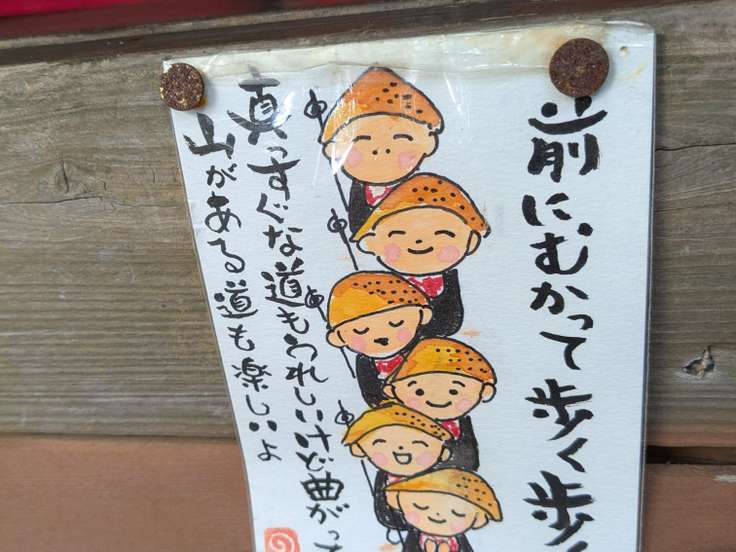 前にむかって歩く歩く
真っすぐな道もうれしいけど曲がっ
山がある道も楽しいよ